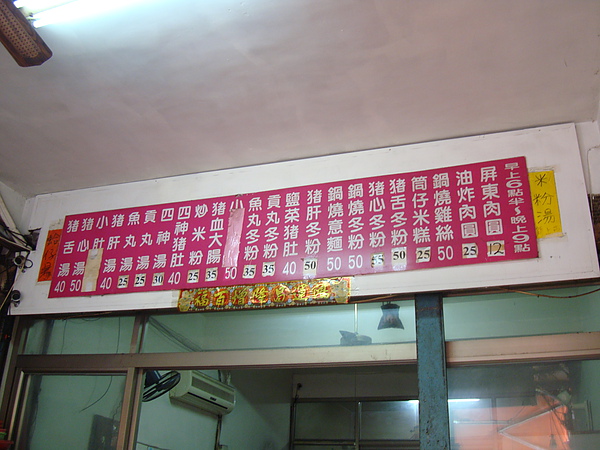 早上0點半～晚上0點
屏東肉圓 12
油炸肉圓 25
鍋燒雞絲 50
筒仔米糕 25
豬舌冬粉 50
豬心冬粉
鍋燒冬粉 50
鍋燒意麵 50
豬肝冬粉 50
鹽菜豬肚 40
貢丸冬粉 35
魚丸冬粉 35
小
豬血大腸 35
炒米粉 25
四神豬肚 40
四神湯 30
貢丸湯 25
魚丸湯 25
豬肝湯 40
小肚
豬心湯 50
豬舌湯 40
米粉湯